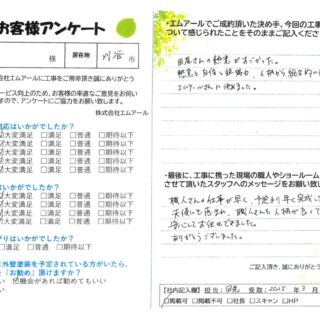 お客様アンケート
様
居在地
刈谷市
株式会社エムアール
会社エムアールに工事をご用命頂き誠にありがとう
ービス向上のため、お客様の率直なご意見をお伺い
すので、アンケートにご協力をお願い致します。
対応はいかがでしたか？
大変満足 □満足 □普通 □期待以下
大変満足 □満足 □普通 □期待以下
大変満足 □満足 □普通 □期待以下
はいかがでしたか？
大変満足 □満足 □普通 □期待以下
大変満足 □満足 □普通 □期待以下
大変満足 □満足 □普通 □期待以下
がりはいかがでしたか？
□満足 □普通 □期待以下
に外壁塗装を予定されている方がいたら、
を「お勧め」頂けますか？
機会があれば勧めてもいい
・エムアールでご成約頂いた決め手、今回の工事
ついて感じられたことをそのままご記入ください
田尾さんの熱意がすごかった。
エムアールさんに決めました。
・最後に、工事に携った現場の職人やショールーム
させて頂いたスタッフへのメッセージをお願い致し
職人さんの仕事が早く、予定より早く完成し
ありがとうございました。
ご記入頂き、誠にありがとう
【社内記入欄】担当：田尾 受取：2025年3月
□掲載可 □掲載不可 □社長 □スキャン □HP